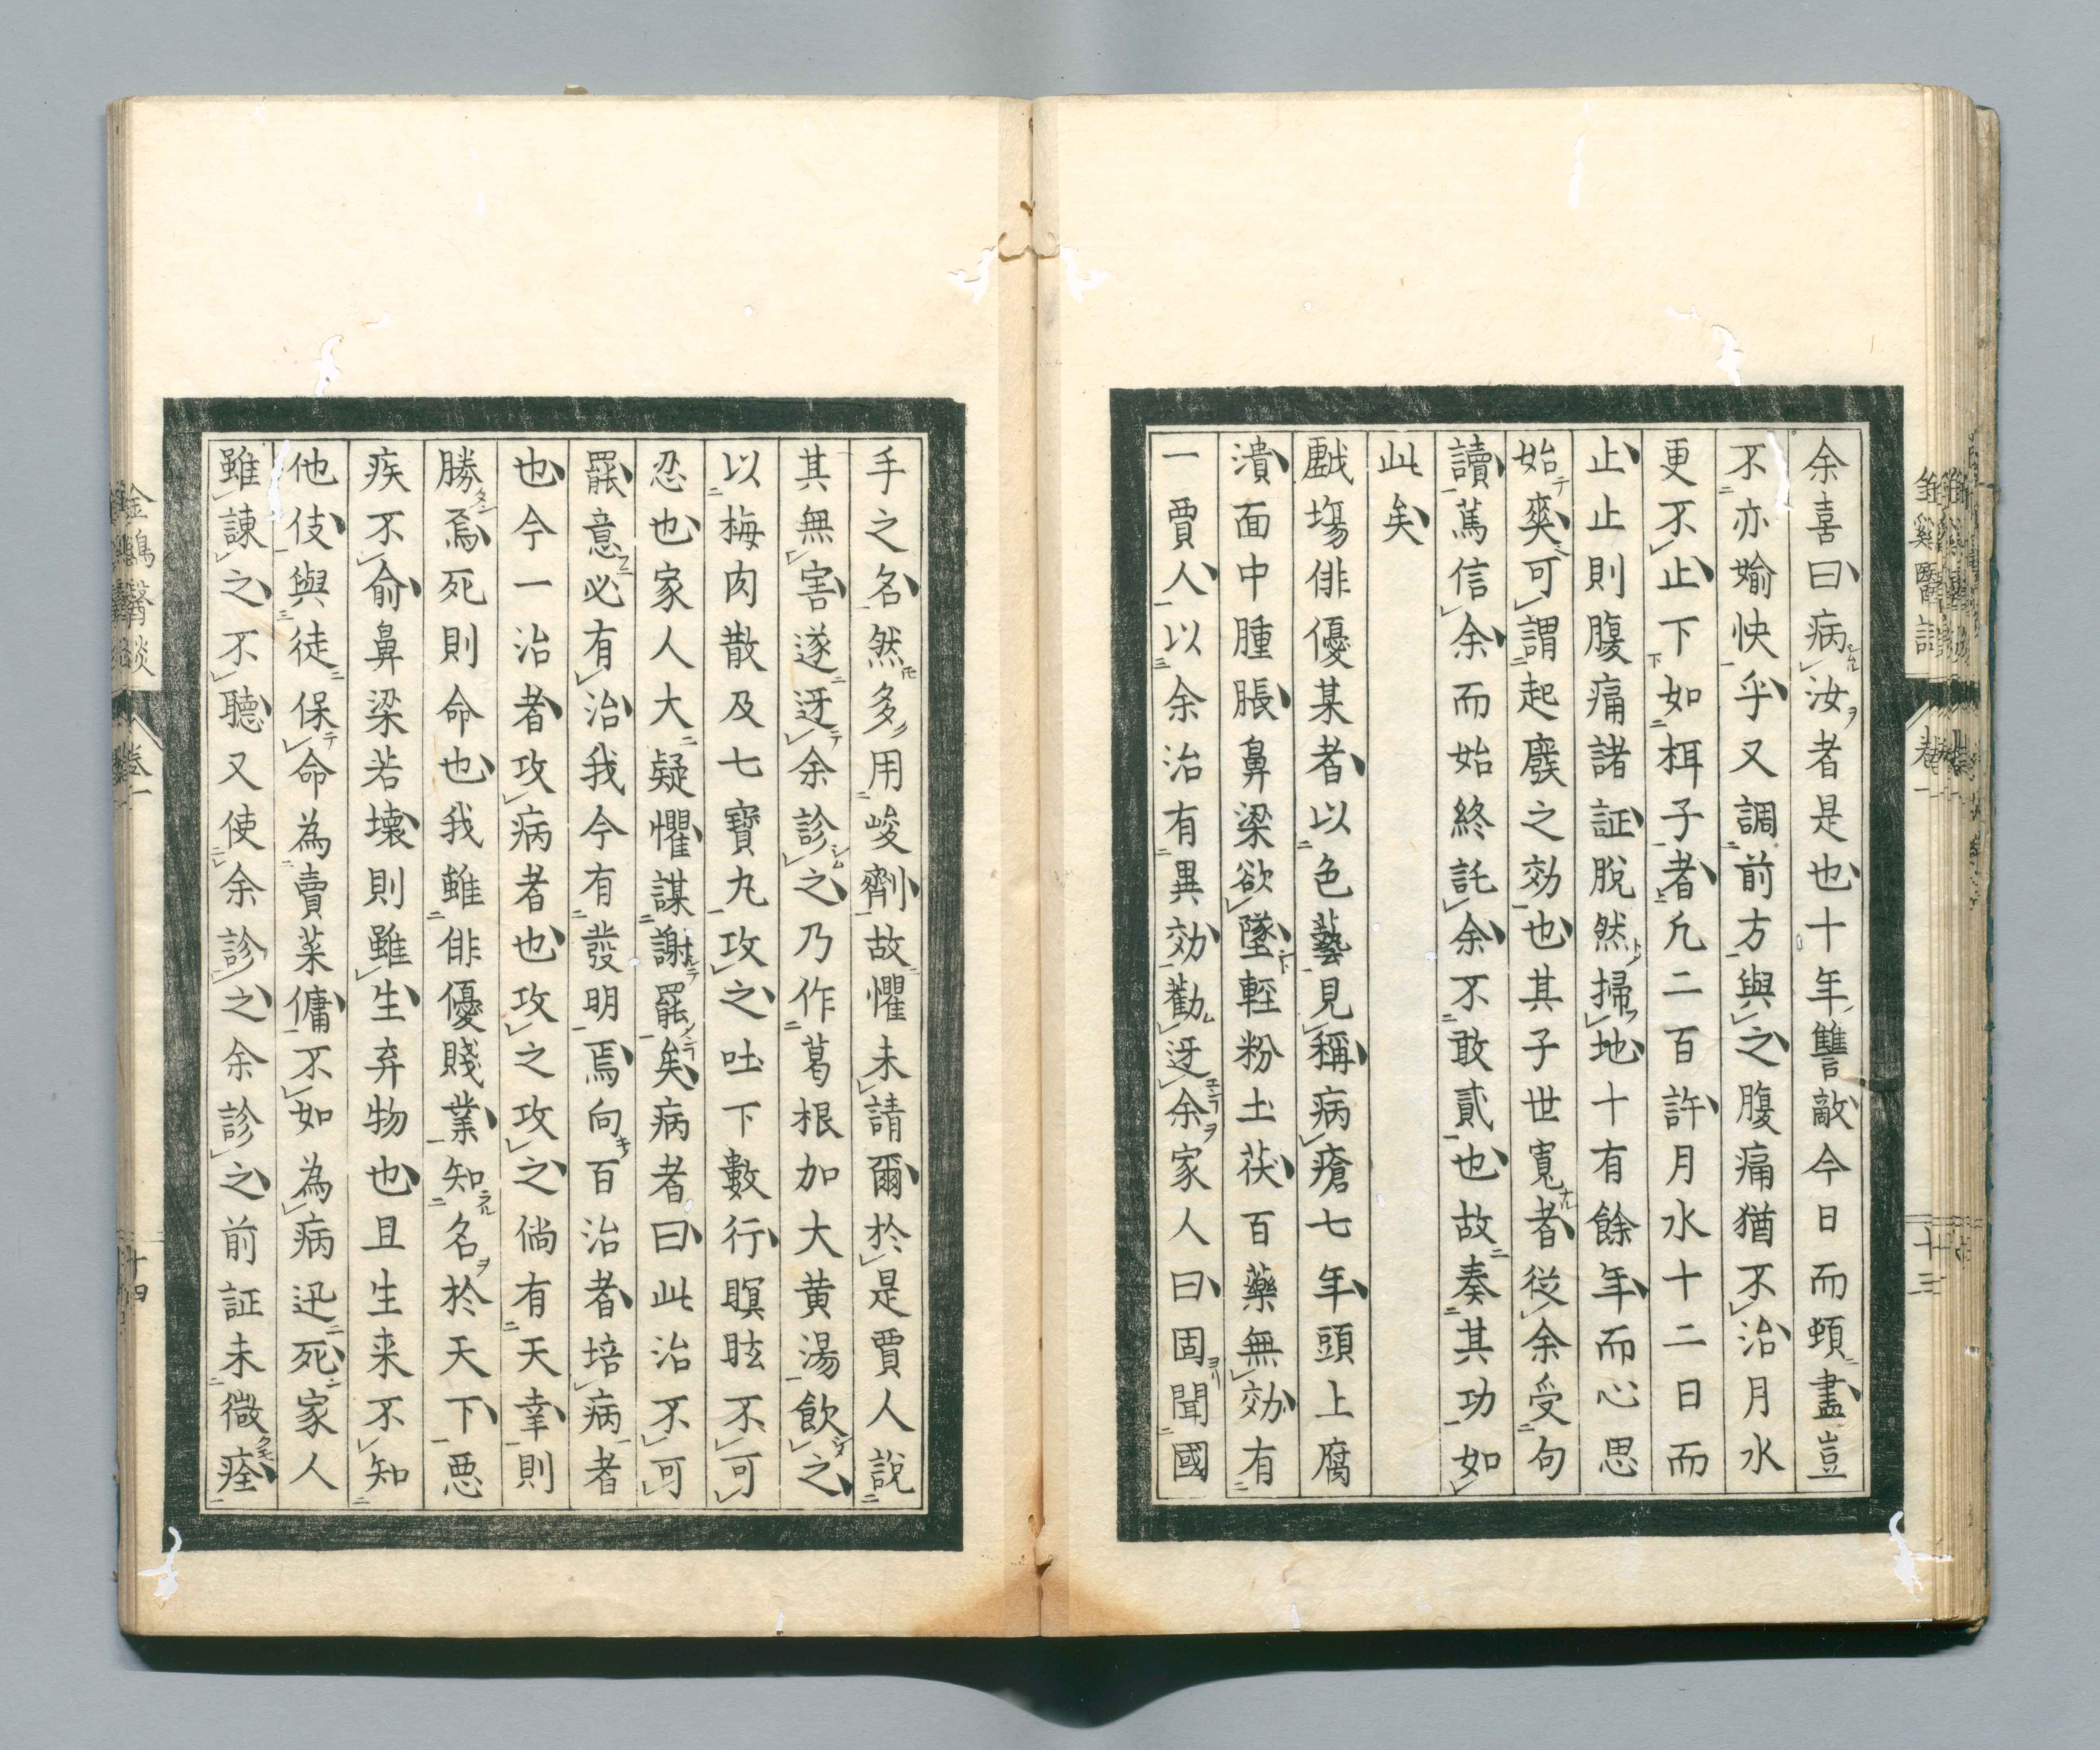 余喜曰病汝者是也十年讐敵今日而頓盡豈
不亦婾快乎又調前方與之腹痛猶不治月水
更不止下如枏子者凡二百許月水十二日而
止止則腹痛諸証脫然掃地十有餘年而心思
始爽可謂起廢之効也其子世寬者從余受句
讀篤信余而始終託余不敢貳也故奏其功如
此矣
戲塲俳優某者以色藝見稱病瘡七年頭上腐
潰面中腫脹鼻梁欲墜輕粉土茯百藥無効有
一賈人以余治有異効勸迓余家人曰固聞國
手之名然多用峻劑故懼未請爾於是賈人說
其無害遂迓余診之乃作葛根加大黃湯飲之
以梅肉散及七寶丸攻之吐下數行瞑眩不可
忍也家人大疑懼謀謝罷矣病者曰此治不可
罷意必有治我今有發明焉向百治者培病者
也今一治者攻病者也攻之攻之倘有天幸則
勝焉死則命也我雖俳優賤業知名於天下惡
疾不俞鼻梁若壞則雖生弃物也且生来不知
他伎與徒保命為賣菜傭不如為病迅死家人
雖諫之不聽又使余診之余診之前証未微痊
金鷄醫談
卷一
十四
卷一
十三